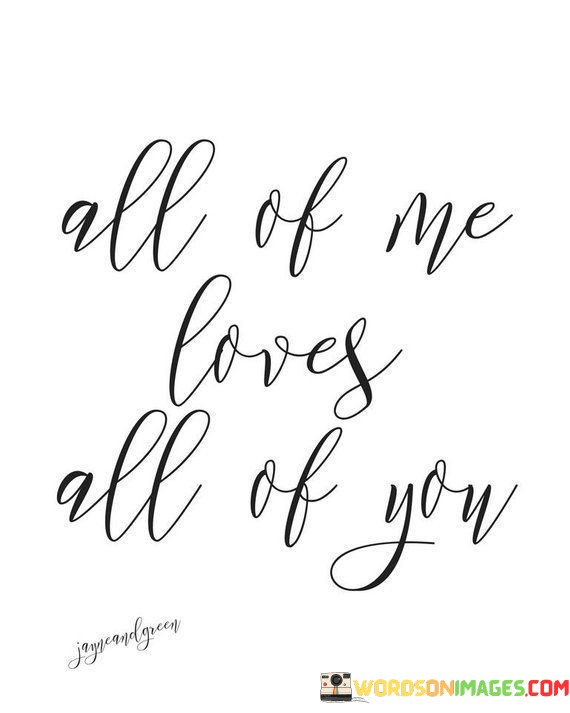 all of me
loves
all of you
jayneandgreen
WORDSONIMAGES.COM